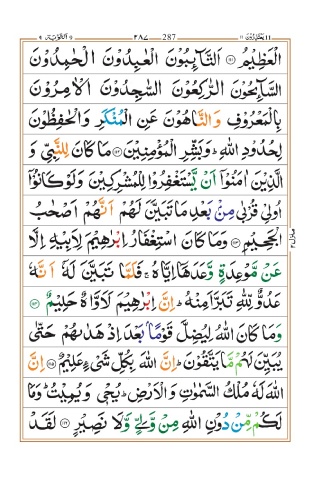 التوبة ٩ ٢٨٧ 287 يعتذرون ١١
الْعَظِيْمُ ۝۱۱۱ اَلتَّآىِٕبُوْنَ الْعٰبِدُوْنَ الْحٰمِدُوْنَ
السَّآىِٕحُوْنَ الرّٰكِعُوْنَ السّٰجِدُوْنَ الْاٰمِرُوْنَ
بِالْمَعْرُوْفِ وَالنَّاهُوْنَ عَنِ الْمُنْكَرِ وَالْحٰفِظُوْنَ
لِحُدُوْدِ اللّٰهِ ؕ وَبَشِّرِ الْمُؤْمِنِيْنَ ۝۱۱۲ مَا كَانَ لِلنَّبِيِّ وَ
الَّذِيْنَ اٰمَنُوْۤا اَنْ يَّسْتَغْفِرُوْا لِلْمُشْرِكِيْنَ وَلَوْ كَانُوْۤا
اُولِيْ قُرْبٰى مِنْۢ بَعْدِ مَا تَبَيَّنَ لَهُمْ اَنَّهُمْ اَصْحٰبُ
الْجَحِيْمِ ۝۱۱۳ وَمَا كَانَ اسْتِغْفَارُ اِبْرٰهِيْمَ لِاَبِيْهِ اِلَّا
عَنْ مَّوْعِدَةٍ وَّعَدَهَاۤ اِيَّاهُ ۚ فَلَمَّا تَبَيَّنَ لَهٗۤ اَنَّهٗ
عَدُوٌّ لِّلّٰهِ تَبَرَّاَ مِنْهُ ؕ اِنَّ اِبْرٰهِيْمَ لَاَوَّاهٌ حَلِيْمٌ ۝۱۱۴
وَمَا كَانَ اللّٰهُ لِيُضِلَّ قَوْمًۢا بَعْدَ اِذْ هَدٰىهُمْ حَتّٰى
يُبَيِّنَ لَهُمْ مَّا يَتَّقُوْنَ ؕ اِنَّ اللّٰهَ بِكُلِّ شَيْءٍ عَلِيْمٌ ۝۱۱۵ اِنَّ
اللّٰهَ لَهٗ مُلْكُ السَّمٰوٰتِ وَالْاَرْضِ ؕ يُحْيٖ وَيُمِيْتُ ؕ وَمَا
لَكُمْ مِّنْ دُوْنِ اللّٰهِ مِنْ وَّلِيٍّ وَّلَا نَصِيْرٍ ۝۱۱۶ لَقَدْ